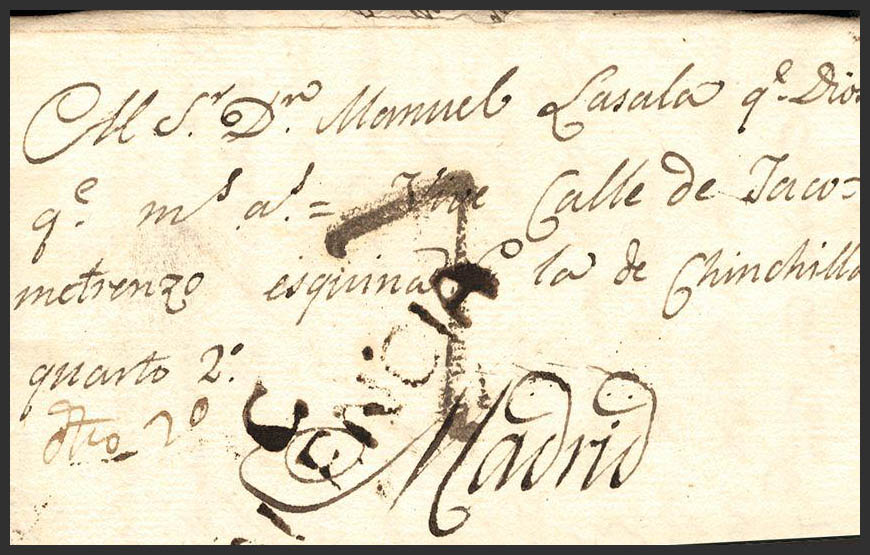 Al S.r D.n Manuel Lasala q.e Dios
g.e m.s a.s = Vive Calle de Jaco=
metrenzo esquina a la de Chinchilla
quarto 2.o
dtro 2o
Madrid
7